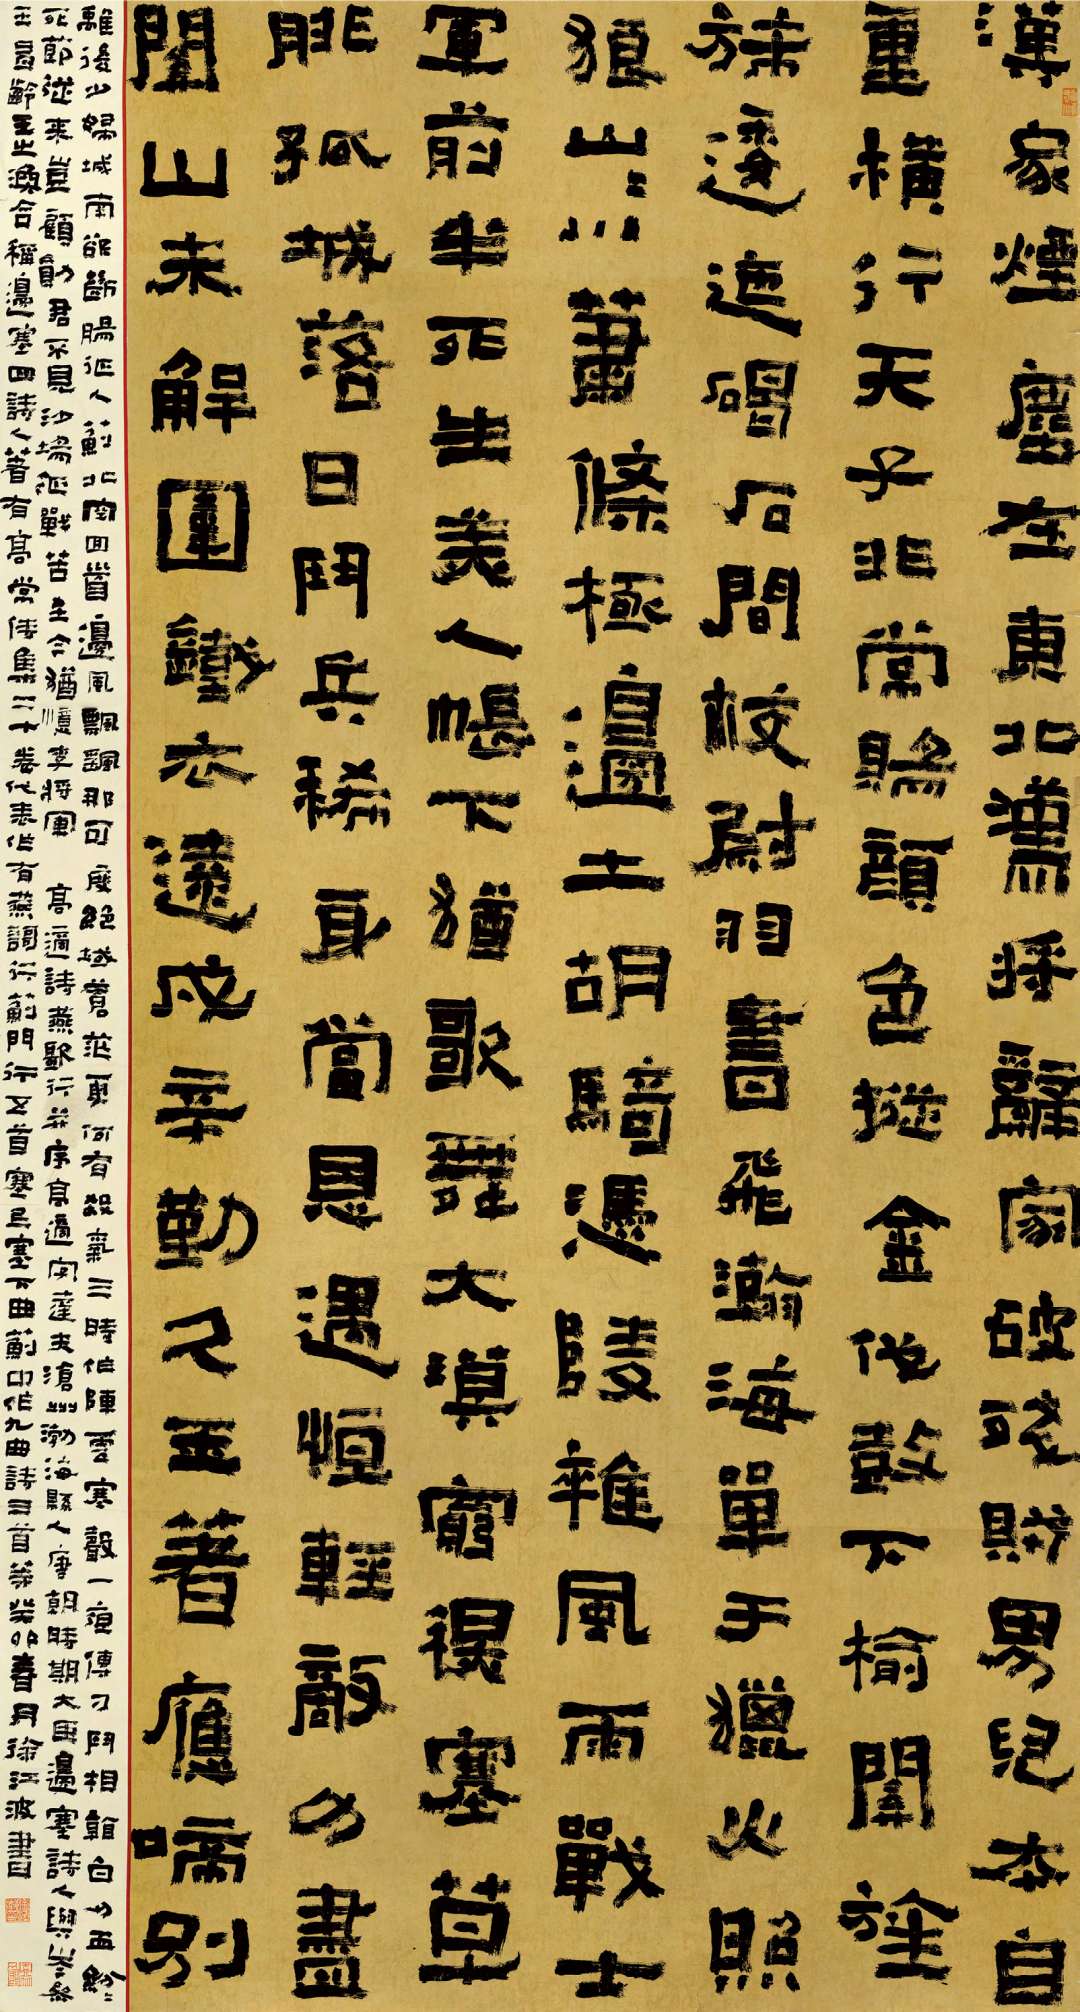 漢家煙塵在東北漢將辭家破殘賊男兒本自
重橫行天子非常賜顏色摐金伐鼓下榆關旌
旆逶迤碣石間校尉羽書飛瀚海單于獵火照
狼山〻川蕭條極邊土胡騎憑陵雜風雨戰士
軍前半死生美人帳下猶歌舞大漠窮塞草
腓孤城落日鬥兵稀身當恩遇恆輕敵力盡
關山未解圍鐵衣遠戍辛勤久玉著應啼別
離後少婦城南欲斷腸征人薊北空回首邊風飄颻那可度絕域蒼茫更何有殺氣三時作陣雲寒聲一夜傳刁鬥相看白刃血紛〻
死節從來豈顧勛君不見沙場征戰苦至今猶憶李將軍 高適詩燕歌行並序高適字達夫滄州渤海縣人唐朝時期大臣邊塞詩人與岑參
王昌齡王之渙合稱邊塞四詩人著有高常侍集二十卷代表作有燕謌行薊門行五首塞上塞下曲薊中作九曲詩三首等癸卯春月徐江波書